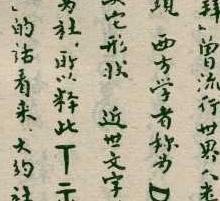 曾流行世界人类
西方学者称为
它形状 近世文字
为社，所以释此丅示
」的话看来，大约社